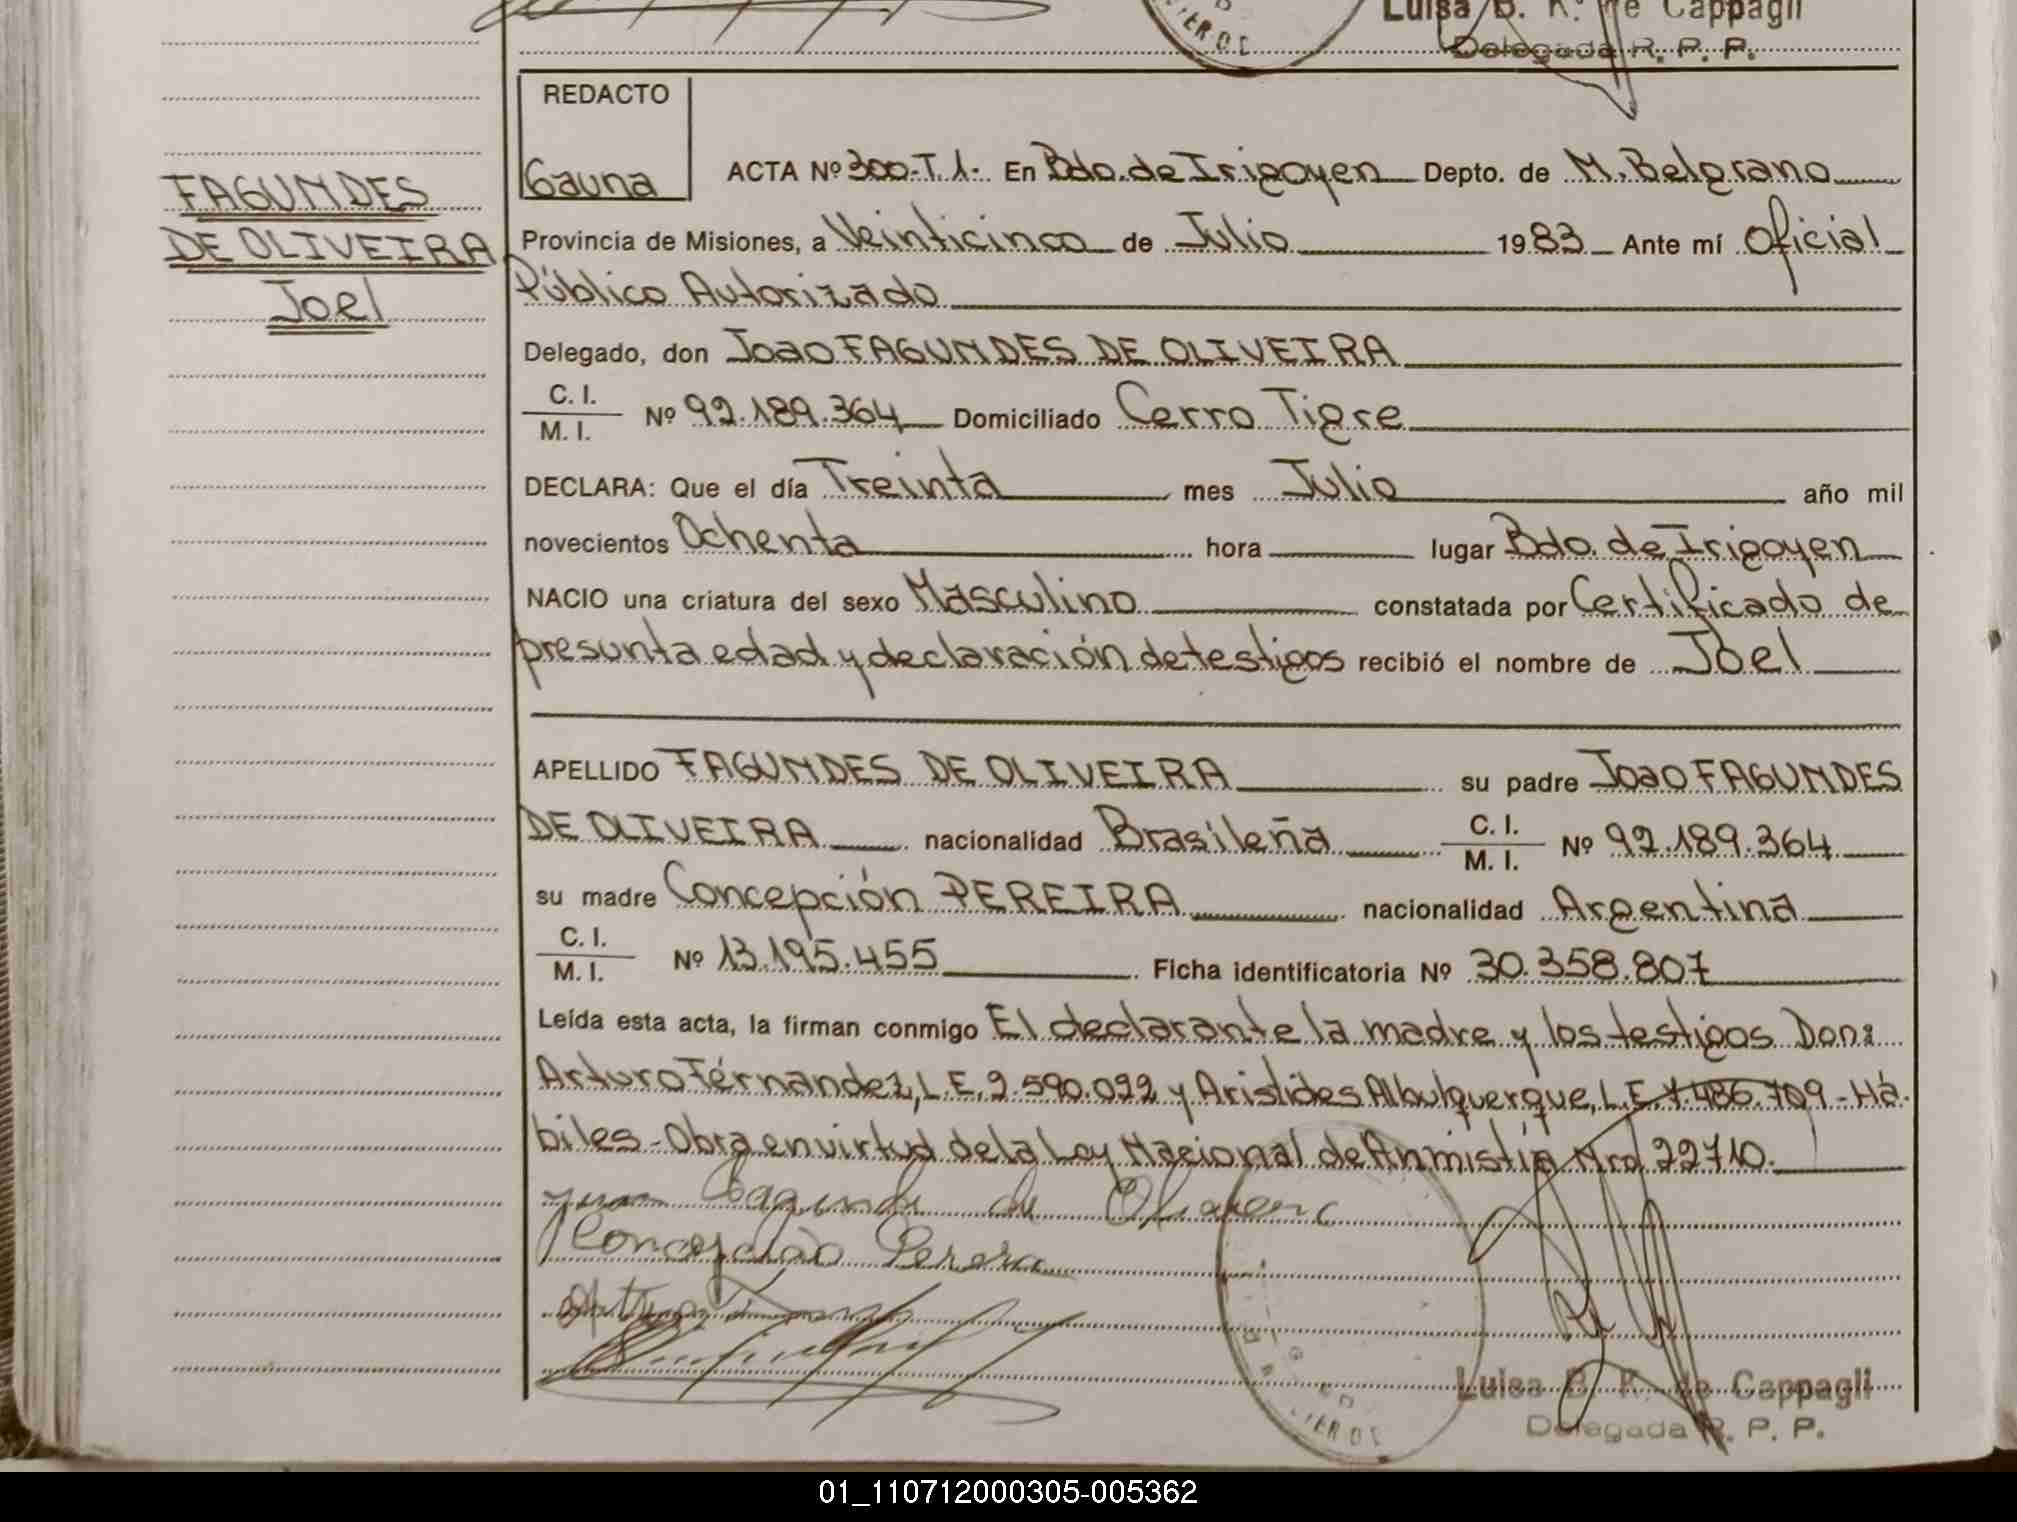 Luisa B. K. de Cappagli
Delegada R. P. P.
REDACTO
Gauna
FAGUNDES
DE OLIVEIRA
Joel
ACTA Nº 300-T.1.- En Bdo. de Irigoyen Depto. de M. Belgrano
Provincia de Misiones, a Veinticinco de Julio 1983 Ante mí Oficial
Público Autorizado
Delegado, don Joao FAGUNDES DE OLIVEIRA
C. I.
M. I. Nº 92.189.364 Domiciliado Cerro Tigre
DECLARA: Que el día Treinta mes Julio año mil
novecientos Ochenta hora lugar Bdo. de Irigoyen
NACIO una criatura del sexo Masculino constatada por Certificado de
presunta edad y declaración de testigos recibió el nombre de Joel
APELLIDO FAGUNDES DE OLIVEIRA su padre Joao FAGUNDES
DE OLIVEIRA nacionalidad Brasileña C. I. M. I. Nº 92.189.364
su madre Concepción PEREIRA nacionalidad Argentina
C. I.
M. I. Nº 13.195.455 Ficha identificatoria Nº 30.358.807
Leída esta acta, la firman conmigo El declarante la madre y los testigos Don:
Arturo Férnandez, L.E. 2.590.092 y Aristides Albulquerque, L.E. 7.486.709 - Há-
biles - Obra en virtud de la Ley Nacional de Anmistia Nro 22710.
de
Concepção Perera
Luisa B. K. de Cappagli
Delegada R. P. P.
01_110712000305-005362